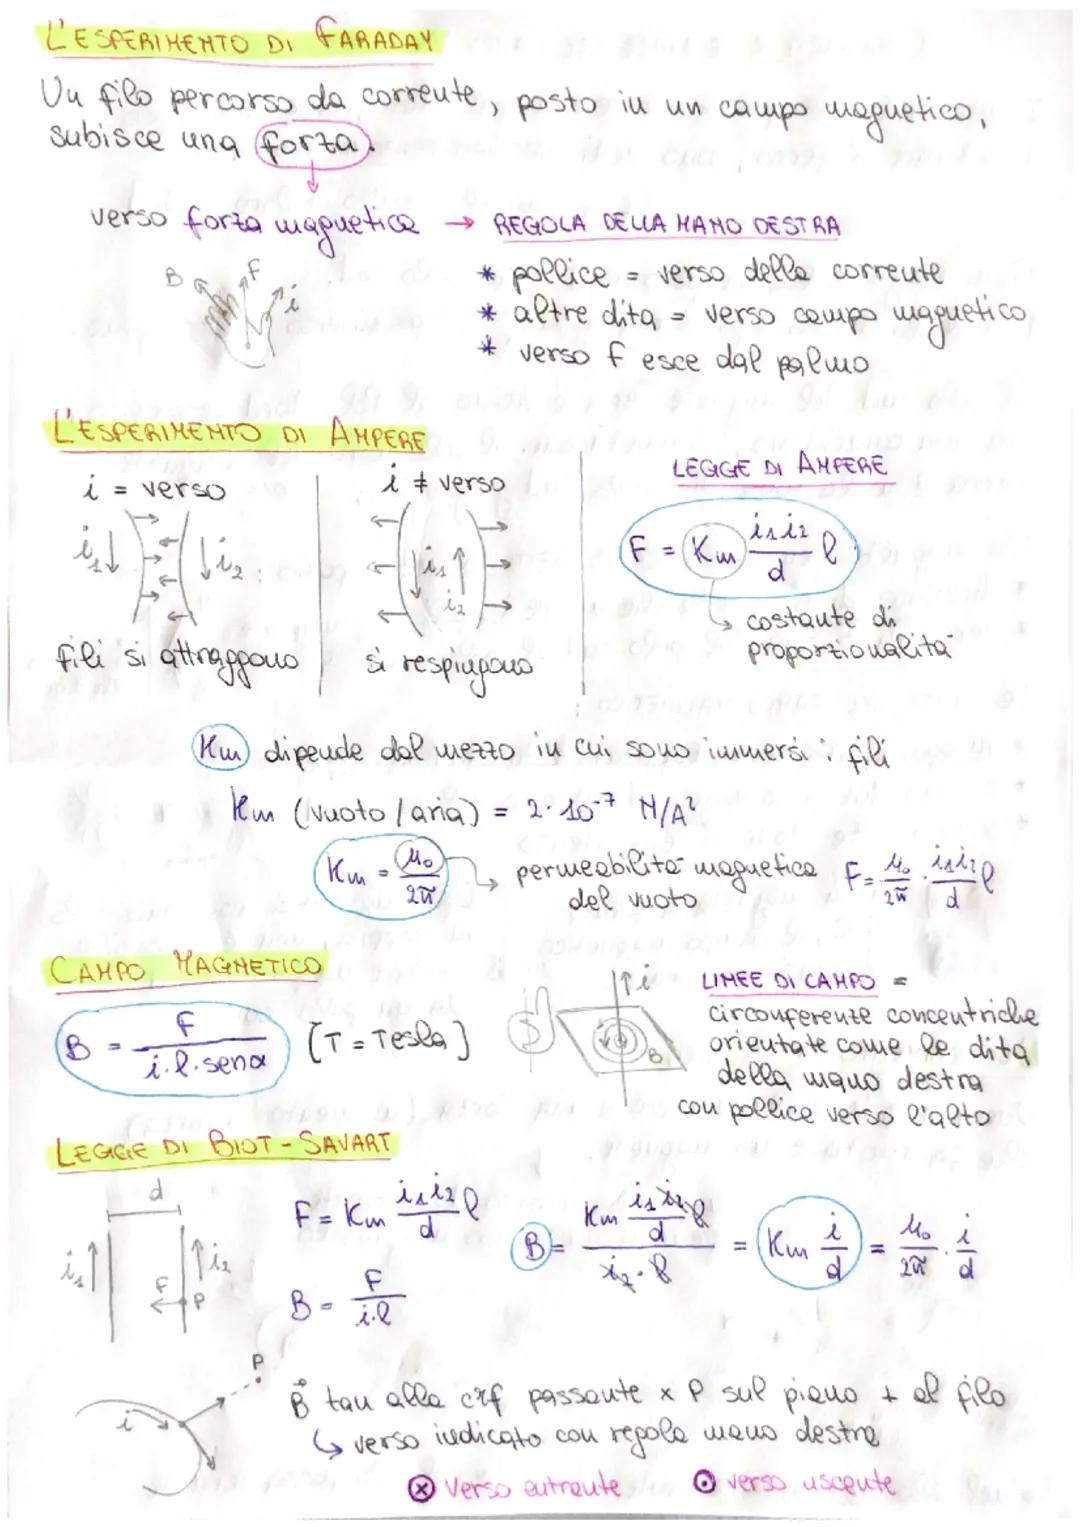 L'ESPERIMENTO DI FARADAY
Un filo percorso da corrente, posto in un campo magnetico,
subisce una forza.
verso forza magnetica → REGOLA DELLA MANO DESTRA
B F i
* pollice = verso della corrente
* altre dita = verso campo magnetico
* verso F esce dal palmo
L'ESPERIMENTO DI AMPERE
i = verso
i ≠ verso
LEGGE DI AMPERE
i₁↓ ↓i₂
↓i₁ ↑i₂
F = Km i₁i₂/d l
↳ costante di
proporzionalità
fili si attraggono
si respingono
Km dipende dal mezzo in cui sono immersi i fili
Km (vuoto / aria) = 2·10⁻⁷ N/A²
Km = μ₀/2π → permeabilità magnetica
del vuoto
F = μ₀/2π · i₁i₂/d l
CAMPO MAGNETICO
B = F/i·l·senα [T = Tesla]
↑i
B
LINEE DI CAMPO =
circonferenze concentriche
orientate come le dita
della mano destra
con pollice verso l'alto
LEGGE DI BIOT-SAVART
d
i₁↑ ↑i₂
F ← P
F = Km i₁i₂/d l
B = F/i·l
B = Km i₁i₂/d l / i₂·l = Km i/d = μ₀/2π · i/d
P
i
B⃗ tan alla crf passante x P sul piano ⊥ al filo
↳ verso indicato con regola mano destra
⊗ verso entrante ⊙ verso uscente